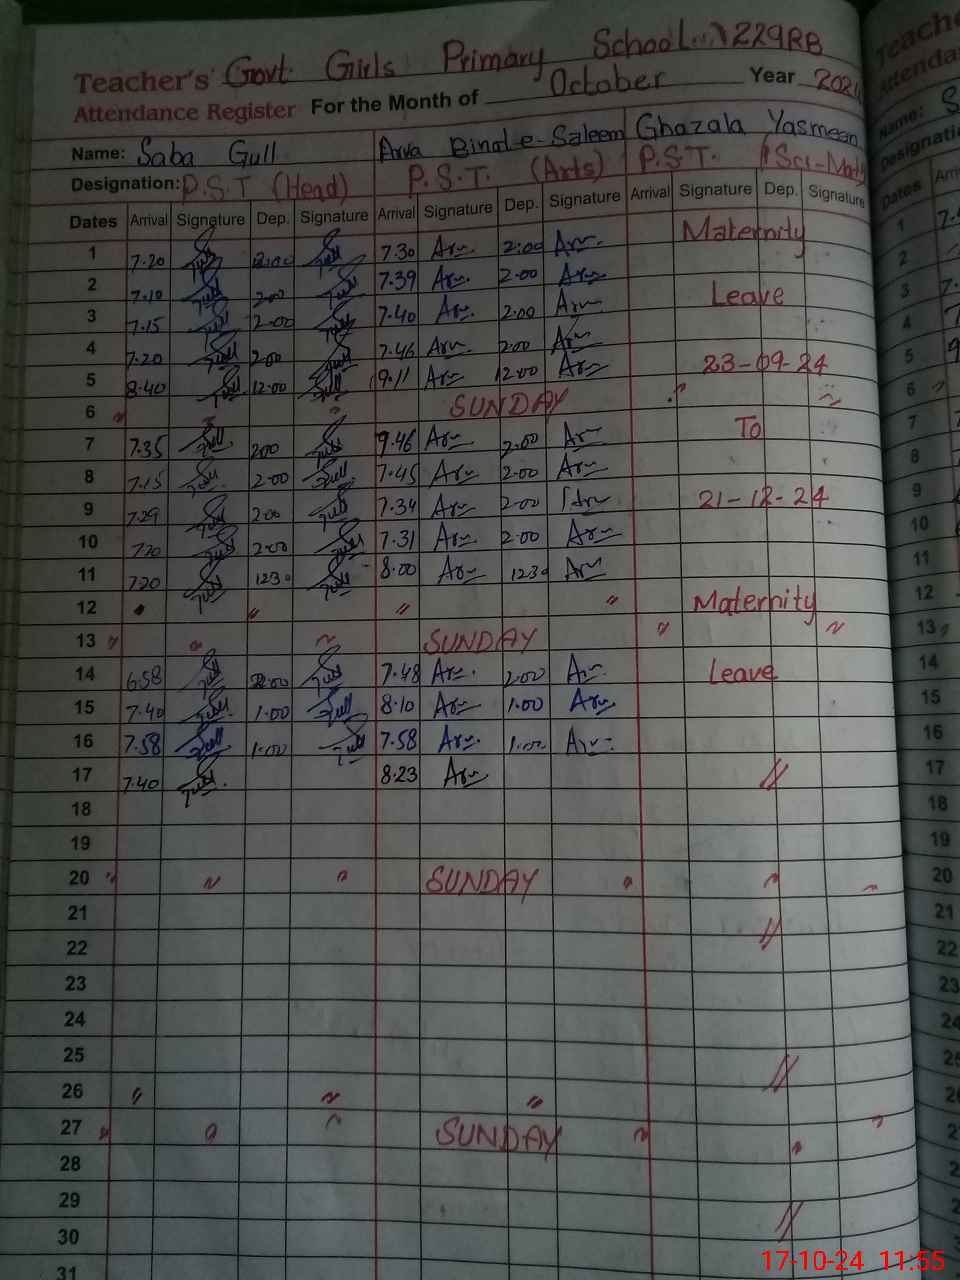 Teacher's Govt. Girls Primary School 229RB
Attendance Register For the Month of October Year 2024
Name: Saba Gull Arva Bint-e-Saleem Ghazala Yasmeen
Designation: P.S.T (Head) P.S.T. (Arts) P.S.T. (Sci-Math)
Dates Arrival Signature Dep. Signature Arrival Signature Dep. Signature Arrival Signature Dep. Signature
1 7.20 2:00 7.30 Arv 2:00 Arv Maternity
2 7.10 2.00 7.39 Arv 2.00 Arv
3 7.15 2.00 7.40 Arv 2.00 Arv Leave
4 7.20 2.00 7.46 Arv 2.00 Arv
5 8.40 12.00 9.11 Arv 12.00 Arv 23-09-24
6 〃 〃 〃 SUNDAY 〃 〃
7 7.35 2.00 9.46 Arv 2.00 Arv To
8 7.15 2.00 7.45 Arv 2.00 Arv
9 7.29 2.00 7.34 Arv 2.00 Arv 21-12-24
10 7.20 2.00 7.31 Arv 2.00 Arv
11 7.20 1230 8.00 Arv 1230 Arv
12 〃 〃 〃 〃 Maternity
13 〃 〃 〃 SUNDAY 〃 〃
14 6.58 2.00 7.48 Arv 2.00 Arv Leave
15 7.40 1.00 8.10 Arv 1.00 Arv
16 7.58 1.00 7.58 Arv 1.00 Arv
17 7.40 8.23 Arv //
18
19
20 〃 〃 〃 SUNDAY 〃 〃 〃
21
22 //
23
24
25
26 〃 〃 〃 //
27 〃 〃 〃 SUNDAY 〃 〃 〃
28
29
30 //
31
17-10-24 11:55